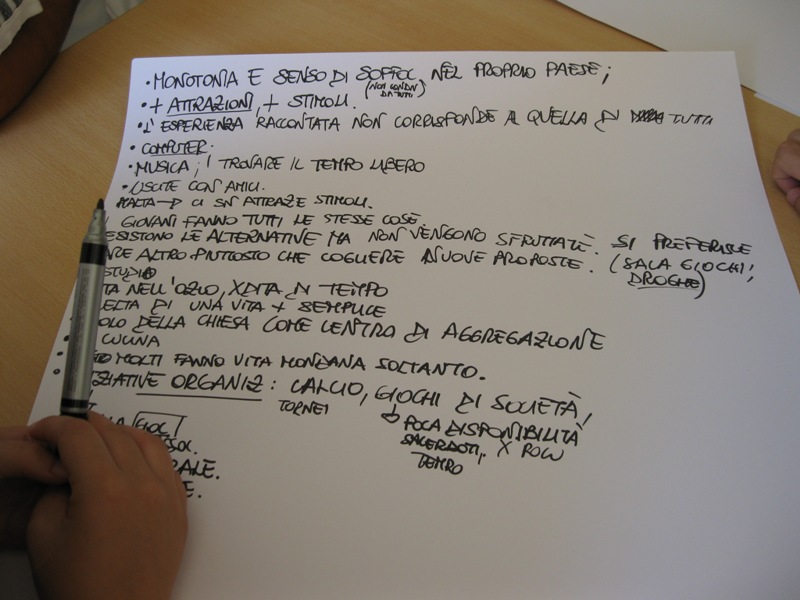 • MONOTONIA E SENSO DI SOFFOC. NEL PROPRIO PAESE;
(NON CONDIV. DA TUTTI)
• + ATTRAZIONI, + STIMOLI.
• L'ESPERIENZA RACCONTATA NON CORRISPONDE A QUELLA DI TUTTI
• COMPUTER.
• MUSICA; TROVARE IL TEMPO LIBERO
• USCITE CON AMICI.
MALTA → CI SN ATTRAZ E STIMOLI.
I GIOVANI FANNO TUTTI LE STESSE COSE.
ESISTONO LE ALTERNATIVE MA NON VENGONO SFRUTTATE. SI PREFERISCE
ARE ALTRO PIUTTOSTO CHE COGLIERE NUOVE PROPOSTE. (SALA GIOCHI;
DROGHE)
STUDIO
TA NELL'OZIO, XDITA DI TEMPO
ELTA DI UNA VITA + SEMPLICE
OLO DELLA CHIESA COME CENTRO DI AGGREGAZIONE
CUCINA
MOLTI FANNO VITA MONDANA SOLTANTO.
IZIATIVE ORGANIZ: CALCIO, GIOCHI DI SOCIETÀ,
TORNEI
POCA DISPONIBILITÀ
SACERDOTI, X POCO
TEMPO
GIOC
SOL.
RALE.
E.